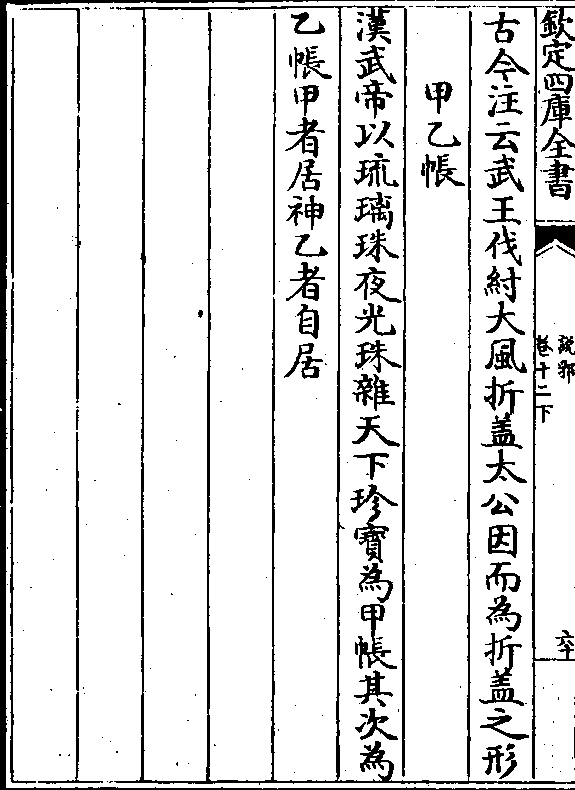 欽定四庫全書
說郛
卷十二下
六十
古今注云武王伐紂大風折盖太公因而為折盖之形
甲乙帳
漢武帝以琉璃珠夜光珠雜天下珍寶為甲帳其次為
乙帳甲者居神乙者自居